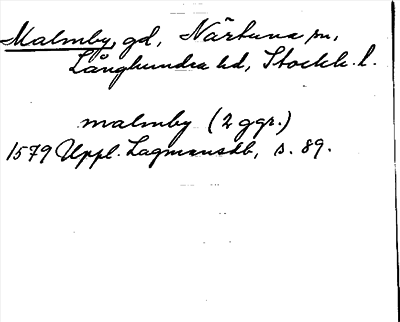 Malmby, gd, Närtuna sn,
Långhundra hd, Stockh. l.
malmby (2 ggr.)
1579 Uppl. Lagmansdb, s. 89.